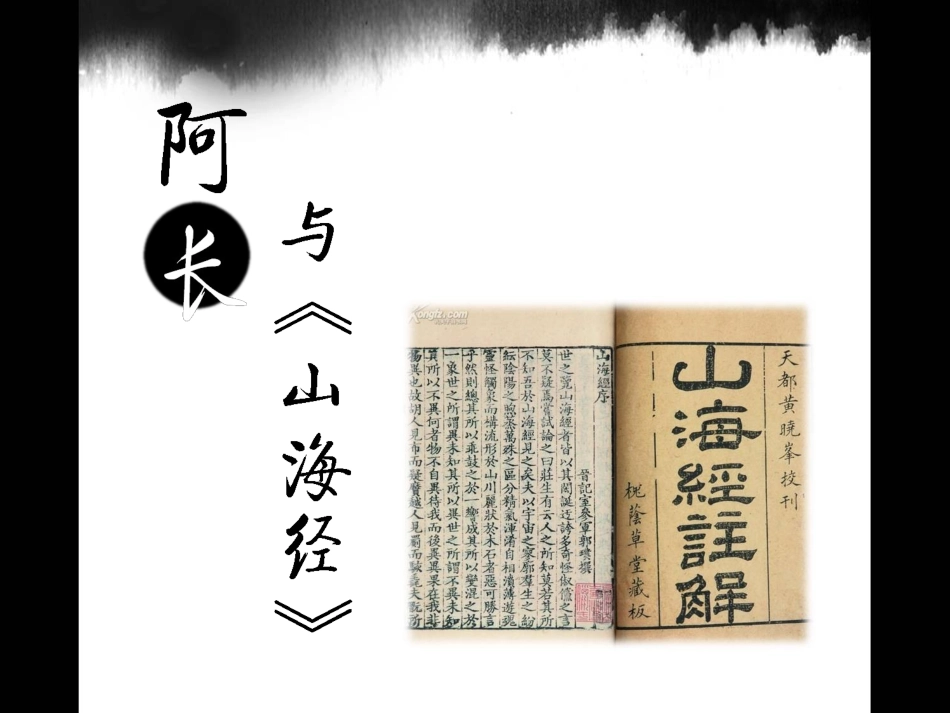 阿长
与《山海经》
Kongfz.com
天都黄曉峯校刊
山海經註解
桃蔭草堂藏板
山海經序
晉記室參軍郭璞撰
世之覽山海經者皆以其閎誕迂誇多奇怪俶儻之言
莫不疑焉嘗試論之曰莊生有云人之所知莫若其所
不知吾於山海經見之矣夫以宇宙之寥廓羣生之紛
紜陰陽之煦蒸萬殊之區分精氣渾淆自相濆薄遊魂
靈怪觸象而構流形於山川麗狀於木石者惡可勝言
乎然則總其所以乖鼓之於一響成其所以變混之於
一象世之所謂異未知其所以異世之所謂不異未知
其所以不異何者物不自異待我而後異異果在我非
物異也故胡人見布而疑黂越人見罽而駭毳夫翫所